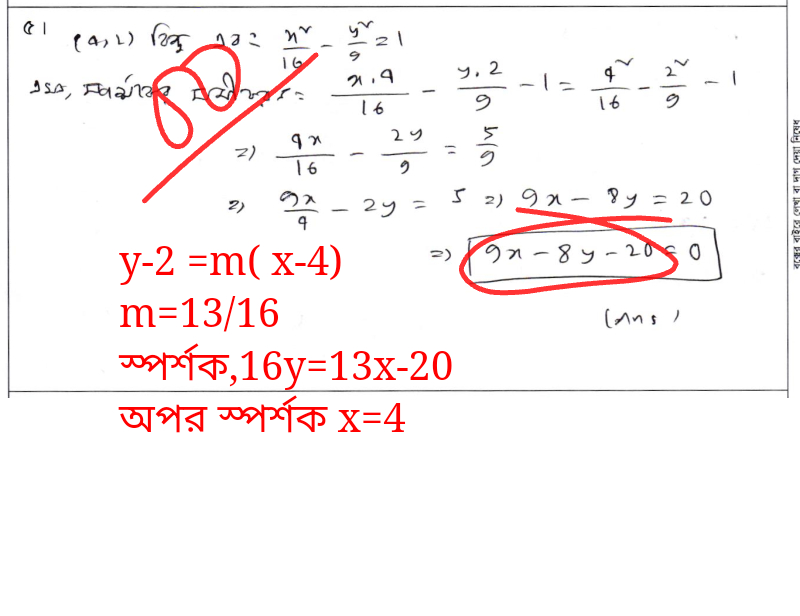 ৫। (4, 2) বিন্দু এবং x²/16 - y²/9 = 1
স্পর্শকের সমীকরণ = x.4/16 - y.2/9 - 1 = 4²/16 - 2²/9 - 1
=) 4x/16 - 2y/9 = 5/9
=) 9x/4 - 2y = 5 =) 9x - 8y = 20
=) 9x - 8y - 20 = 0
(Ans)
y-2 =m( x-4)
m=13/16
স্পর্শক,16y=13x-20
অপর স্পর্শক x=4
বক্সের বাইরে লেখা বা দাগ দেয়া নিষেধ